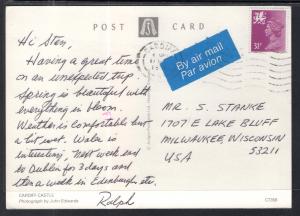 POST CARD
Hi Sten,
Having a great time
on an unexpected trip.
Spring is beautiful with
everything in bloom.
Weather is comfortable but
a bit wet. Wales is
interesting, next week end
to Dublin for 3 days and
then a week in Edinburgh, etc.
Ralph
By air mail
Par avion
31p
MR. S. STANKE
1707 E LAKE BLUFF
MILWAUKEE, WISCONSIN
53211
USA
CARDIFF CASTLE
Photograph by John Edwards